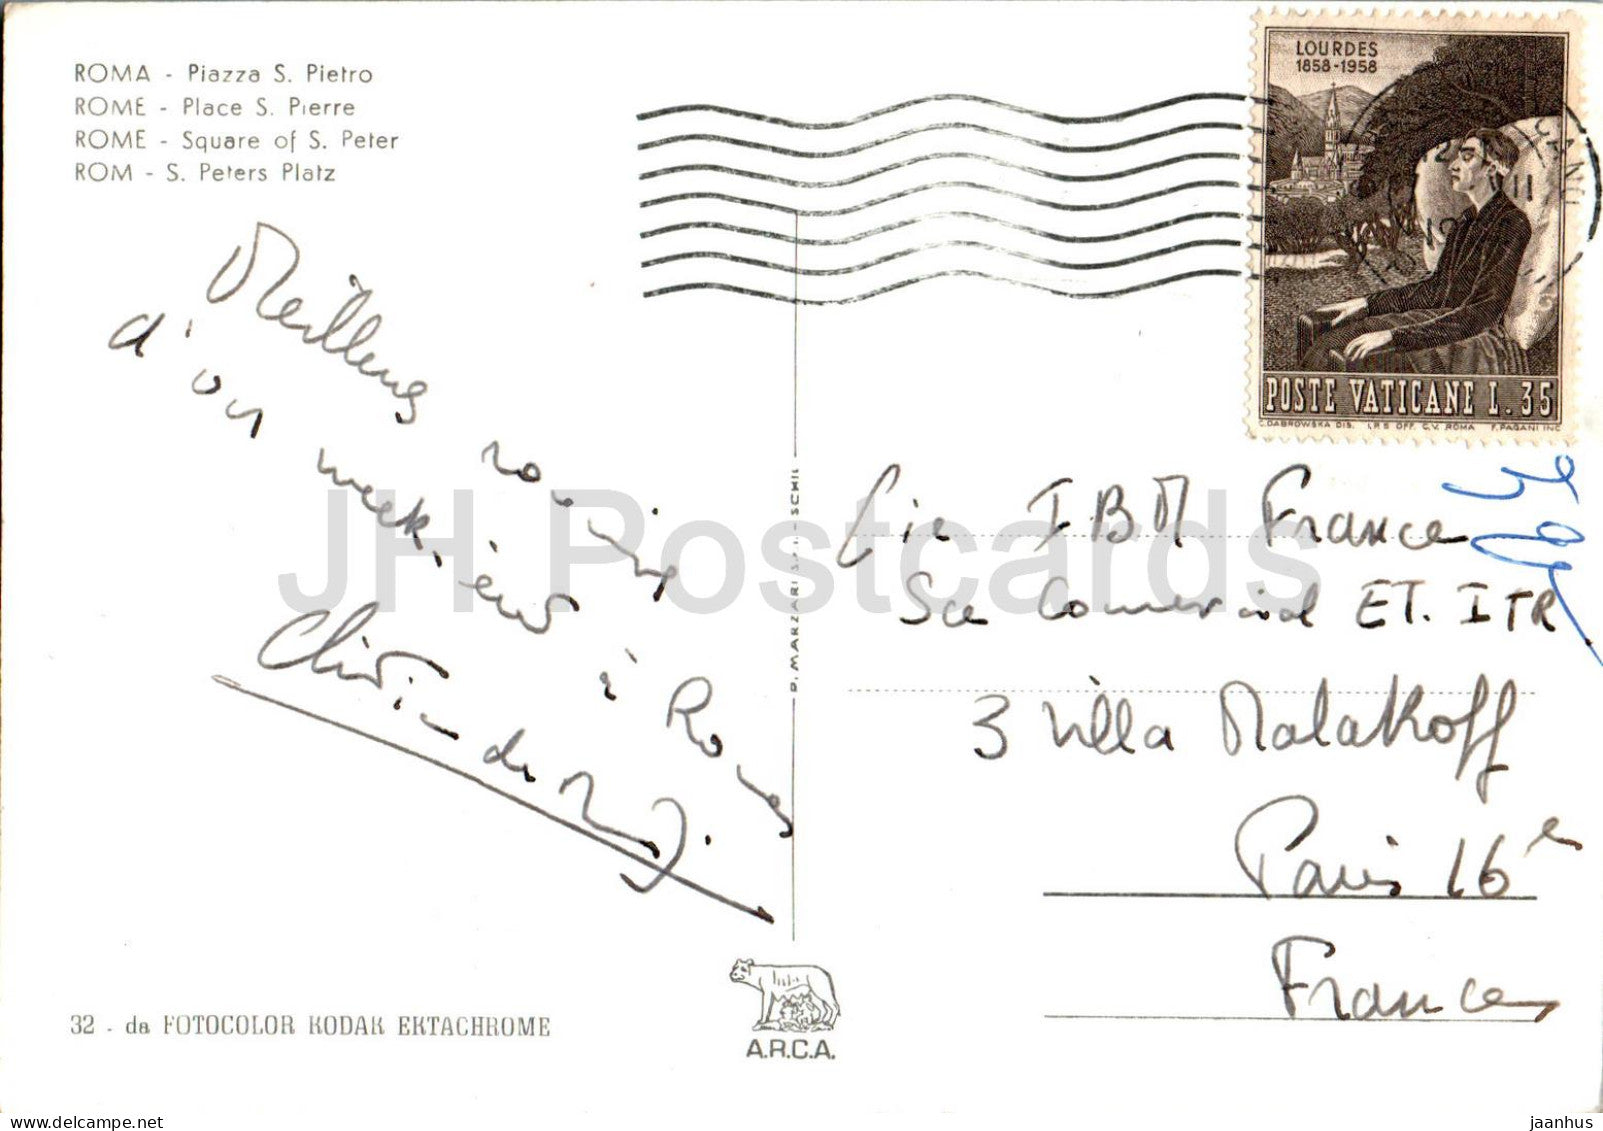 ROMA - Piazza S. Pietro
ROME - Place S. Pierre
ROME - Square of S. Peter
ROM - S. Peters Platz
LOURDES
1858-1958
POSTE VATICANE L. 35
C. DABROWSKA DIS. I.P.S. OFF. C.V. ROMA F. PAGANI INC.
Meilleurs
d'un week-end à Rome
Cie IBM France
Sce Commercial ET. ITR
3 Villa Malakoff
Paris 16e
France
JH Postcards
32 - da FOTOCOLOR KODAK EKTACHROME
A.R.C.A.
jaanhus
www.delcampe.net